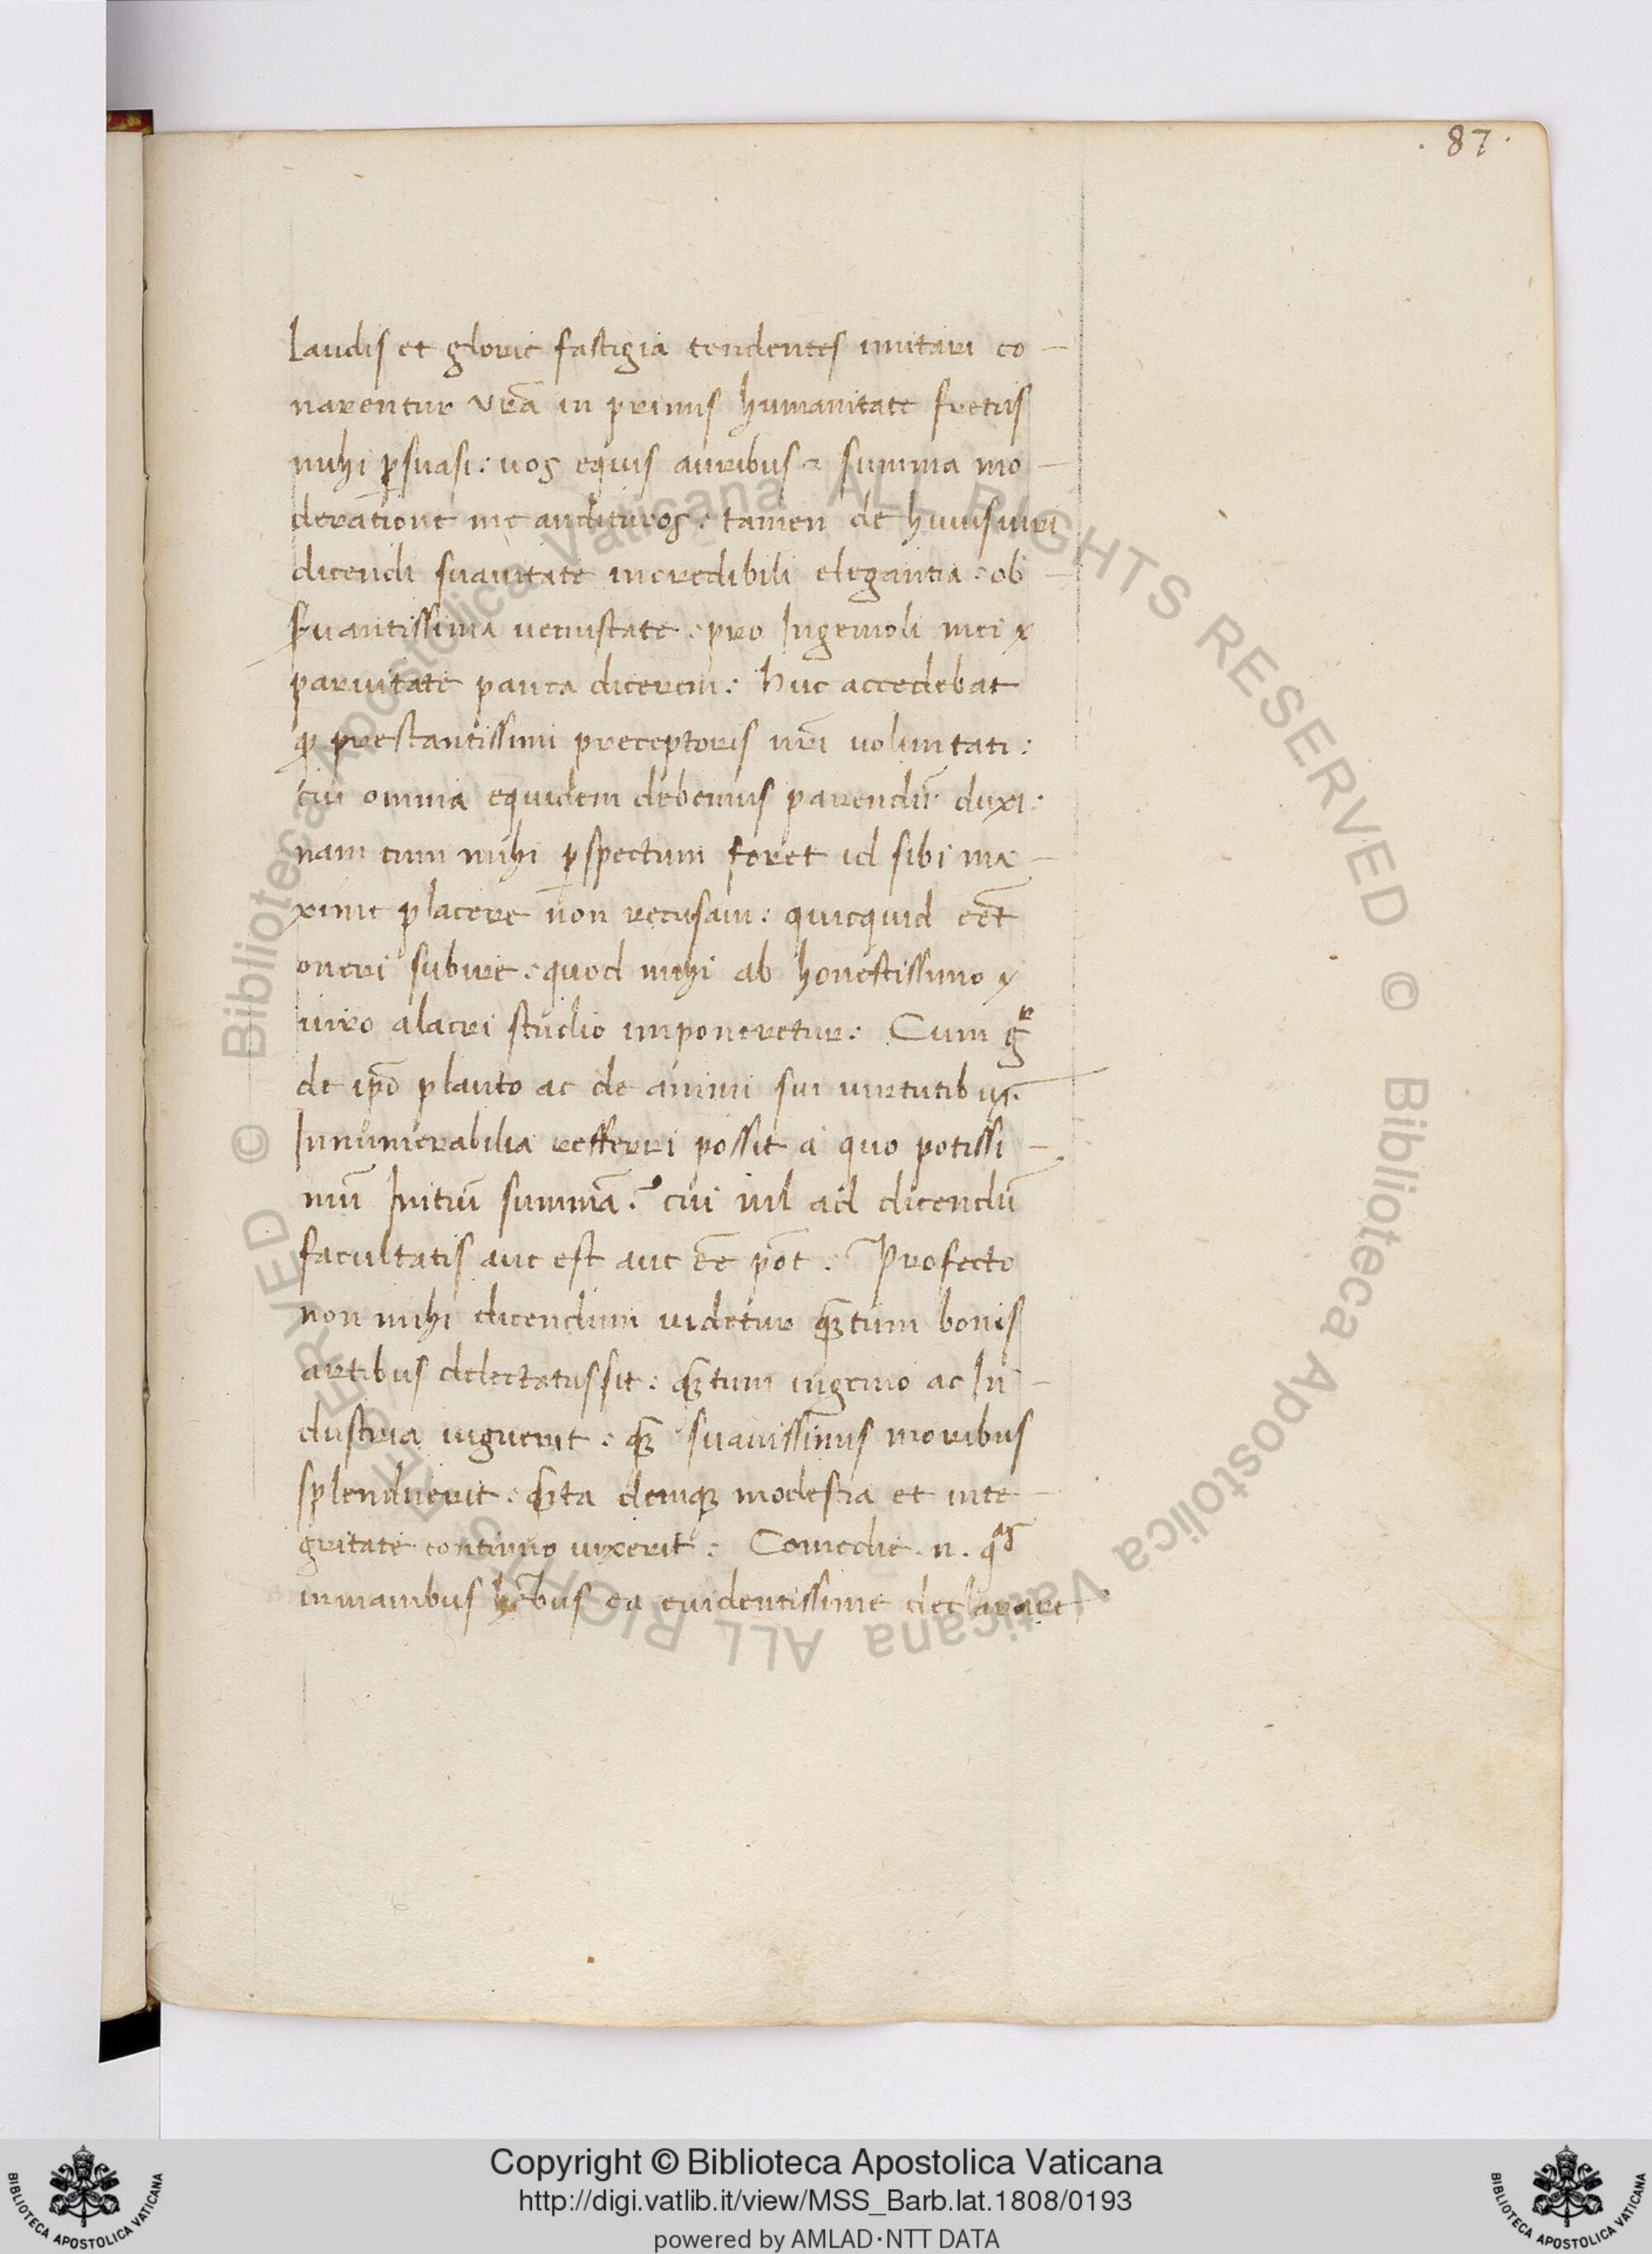 . 87 .
Laudis et glorie fastigia tendentes imitari co-
narentur vrā in primis humanitate fretus
mihi ꝑsuasi : uos equis auribus & summa mo-
deratione me audituros : tamen de huius uiri
dicendi suauitate incredibili elegantia : ob-
seruantissima uenustate : pro Ingenioli mei
paruitate pauca dicerem : huc accedebat
ꝙ prestantissimi preceptoris nrī uoluntati :
cui omnia equidem debemus parendū duxi :
nam cum mihi ꝑspectum foret id sibi ma-
xime placere non recusaui : quicquid eēt
oneri subire : quod mihi ab honestissimo
uiro alacri studio imponeretur : Cum gr̄
de ipō plauto ac de animi sui uirtutibus
Innumerabilia refferri possit a quo potissi-
mū Initiū summā ? cui nil ad dicendū
facultatis aut est aut eē pōt : Profecto
non mihi dicendum uidetur qȝtum bonis
artibus delectatus sit : qȝtum ingenio ac In-
dustria uiguerit : qȝ suauissimis moribus
splenduerit : qñta deniqȝ modestia et inte-
gritate continuo uixerit : Comedie . n . qas
in manibus hēbus ea euidentissime declarare
© Biblioteca Apostolica Vaticana ALL RIGHTS RESERVED © Biblioteca Apostolica Vaticana ALL RIGHTS RESERVED
BIBLIOTECA APOSTOLICA VATICANA
Copyright © Biblioteca Apostolica Vaticana
http://digi.vatlib.it/view/MSS_Barb.lat.1808/0193
powered by AMLAD·NTT DATA
BIBLIOTECA APOSTOLICA VATICANA